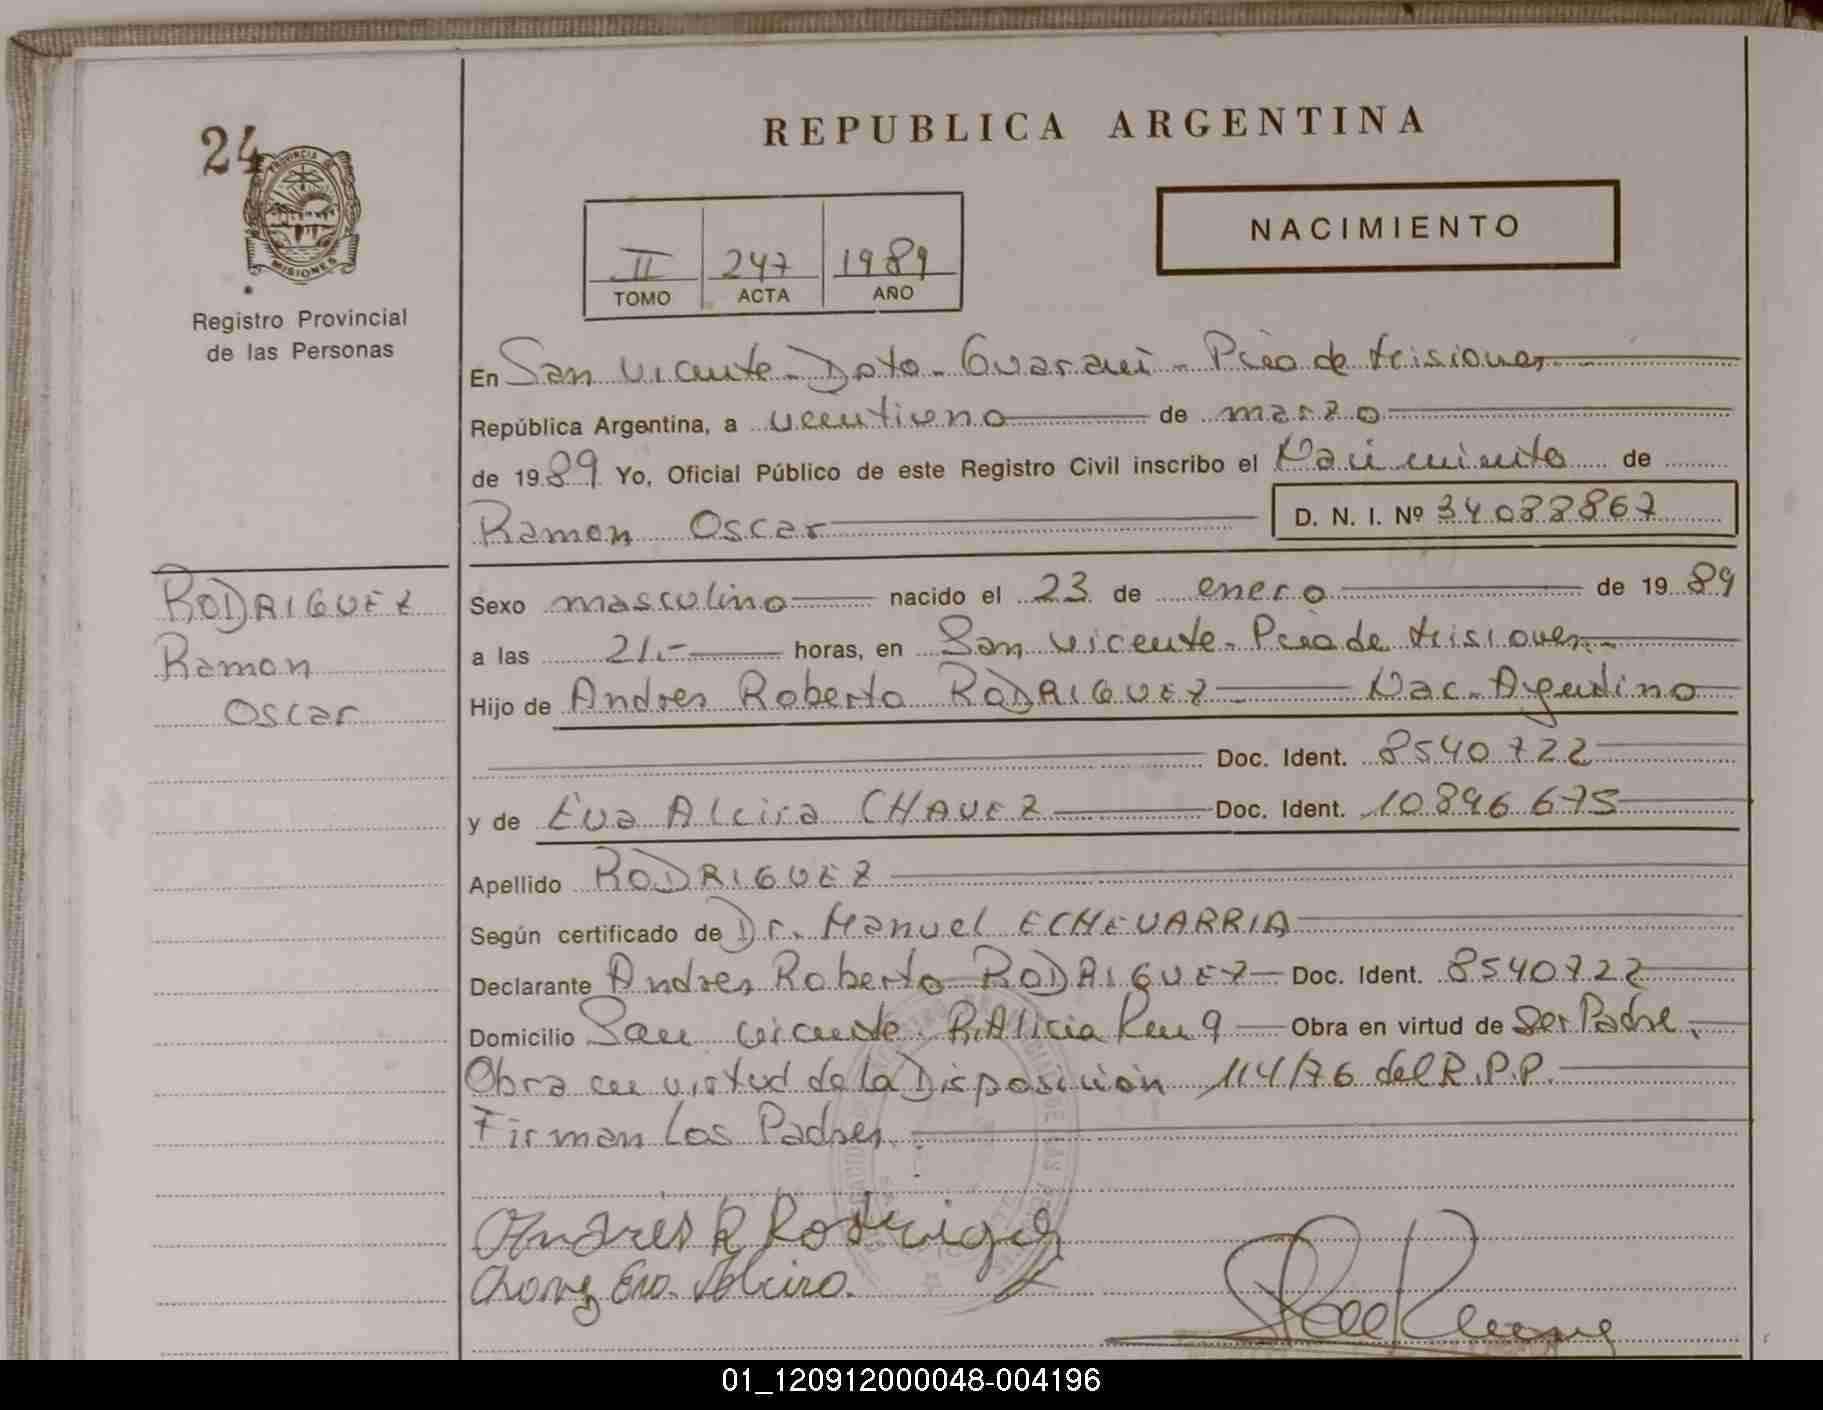 24
PROVINCIA DE
MISIONES
Registro Provincial
de las Personas
REPUBLICA ARGENTINA
NACIMIENTO
II 247 1989
TOMO ACTA AÑO
En San Vicente - Dpto. Guarani - Pcia de Misiones
República Argentina, a veentiuno de marzo
de 1989 Yo, Oficial Público de este Registro Civil inscribo el Nacimiento de
Ramon Oscar D. N. I. Nº 34088867
RODRIGUEZ
Ramon
Oscar
Sexo masculino nacido el 23 de enero de 1989
a las 21.- horas, en San Vicente - Pcia de Misiones.
Hijo de Andres Roberto RODRIGUEZ Nac. Argentino
Doc. Ident. 8540722
y de Eva Alcira CHAVEZ Doc. Ident. 10.896.675
Apellido RODRIGUEZ
Según certificado de Dr. Manuel ECHEVARRIA
Declarante Andres Roberto RODRIGUEZ Doc. Ident. 8540722
Domicilio San Vicente. P. Alicia Km 9 Obra en virtud de Ser Padre.
Obra en virtud de la Disposición 114/76 del R.P.P.
Firman Los Padres.
Andres R Rodrigez
Chavez Eva Alcira.
01_120912000048-004196